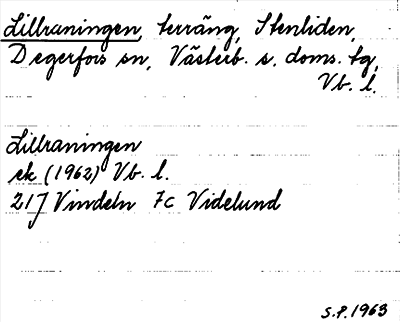 Lillraningen, terräng, Stenliden,
Degerfors sn, Västerb. s. doms. tg,
Vb. l.
Lillraningen
ek (1962) Vb. l.
21J Vindeln 7c Videlund
S.P. 1963